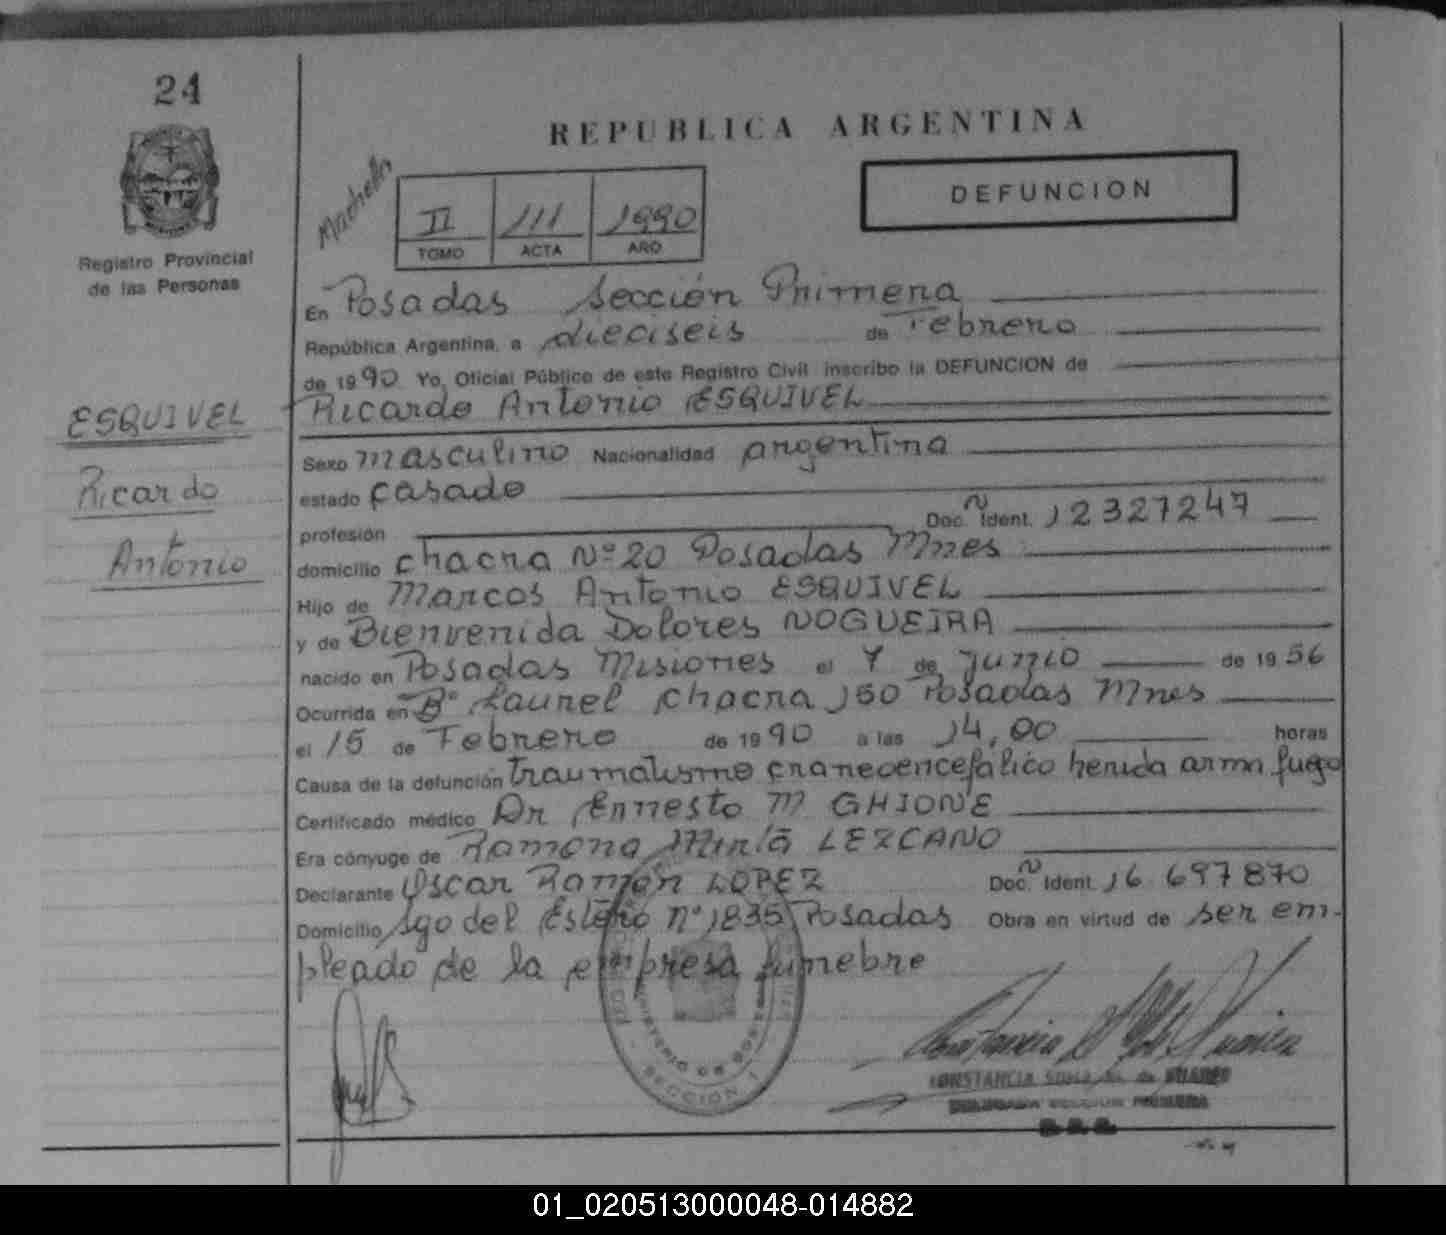 24
Registro Provincial
de las Personas
ESQUIVEL
Ricardo
Antonio
REPUBLICA ARGENTINA
II 111 1990
TOMO ACTA AÑO
DEFUNCION
En Posadas Sección Primera
República Argentina, a dieciseis de Febrero
de 1990 Yo, Oficial Público de este Registro Civil inscribo la DEFUNCION de
Ricardo Antonio ESQUIVEL
Sexo masculino Nacionalidad argentina
estado casado
profesión Doc. Ident. 12327247
domicilio chacra Nº 20 Posadas Mnes
Hijo de Marcos Antonio ESQUIVEL
y de Bienvenida Dolores NOGUEIRA
nacido en Posadas Misiones el de Junio de 1956
Ocurrida en Bº Laurel chacra 150 Posadas Mnes
el 15 de Febrero de 1990 a las 14,00 horas
Causa de la defunción traumatismo craneoencefálico herida arma fuego
Certificado médico Dr Ernesto M GHIONE
Era cónyuge de Ramona Mirta LEZCANO
Declarante Oscar Ramón LOPEZ Doc. Ident. 16 697870
Domicilio Sgo del Estero nº 1835 Posadas Obra en virtud de ser em-
pleado de la empresa funebre
SECCION 1
CONSTANCIA
01_020513000048-014882